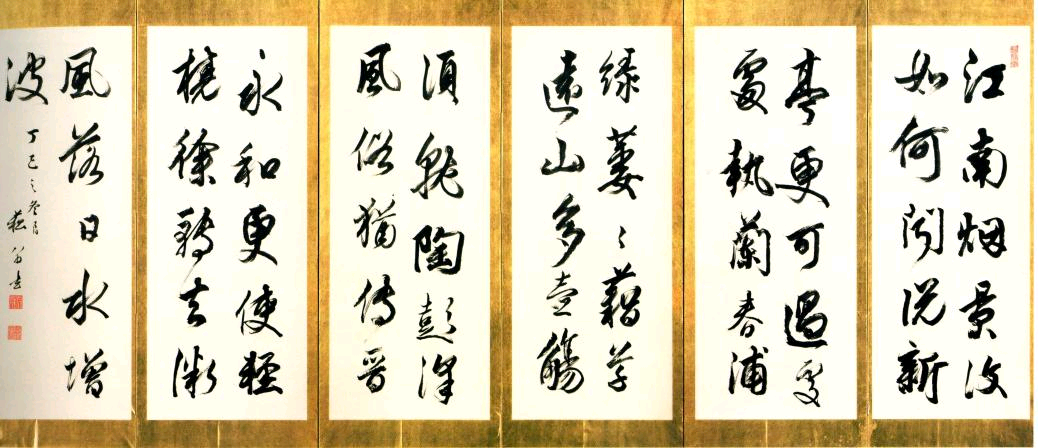 江南烟景復
如何聞説新
亭更可過處
處執蘭春浦
綠萋〻藉草
遠山多壺觴
須就陶彭澤
風俗猶傳晉
永和更使輕
橈徐轉去微
風落日水增
波
丁巳之冬月
菘翁書